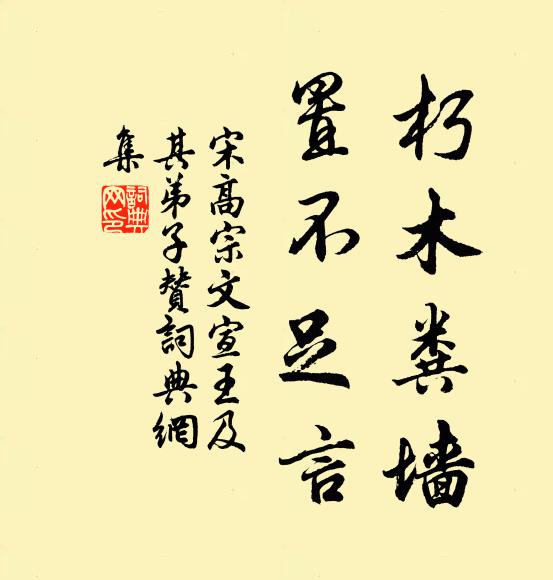 朽木粪墙
置不足言
宋高宗文宣王及
其弟子赞詞典網
集
詞典
网印